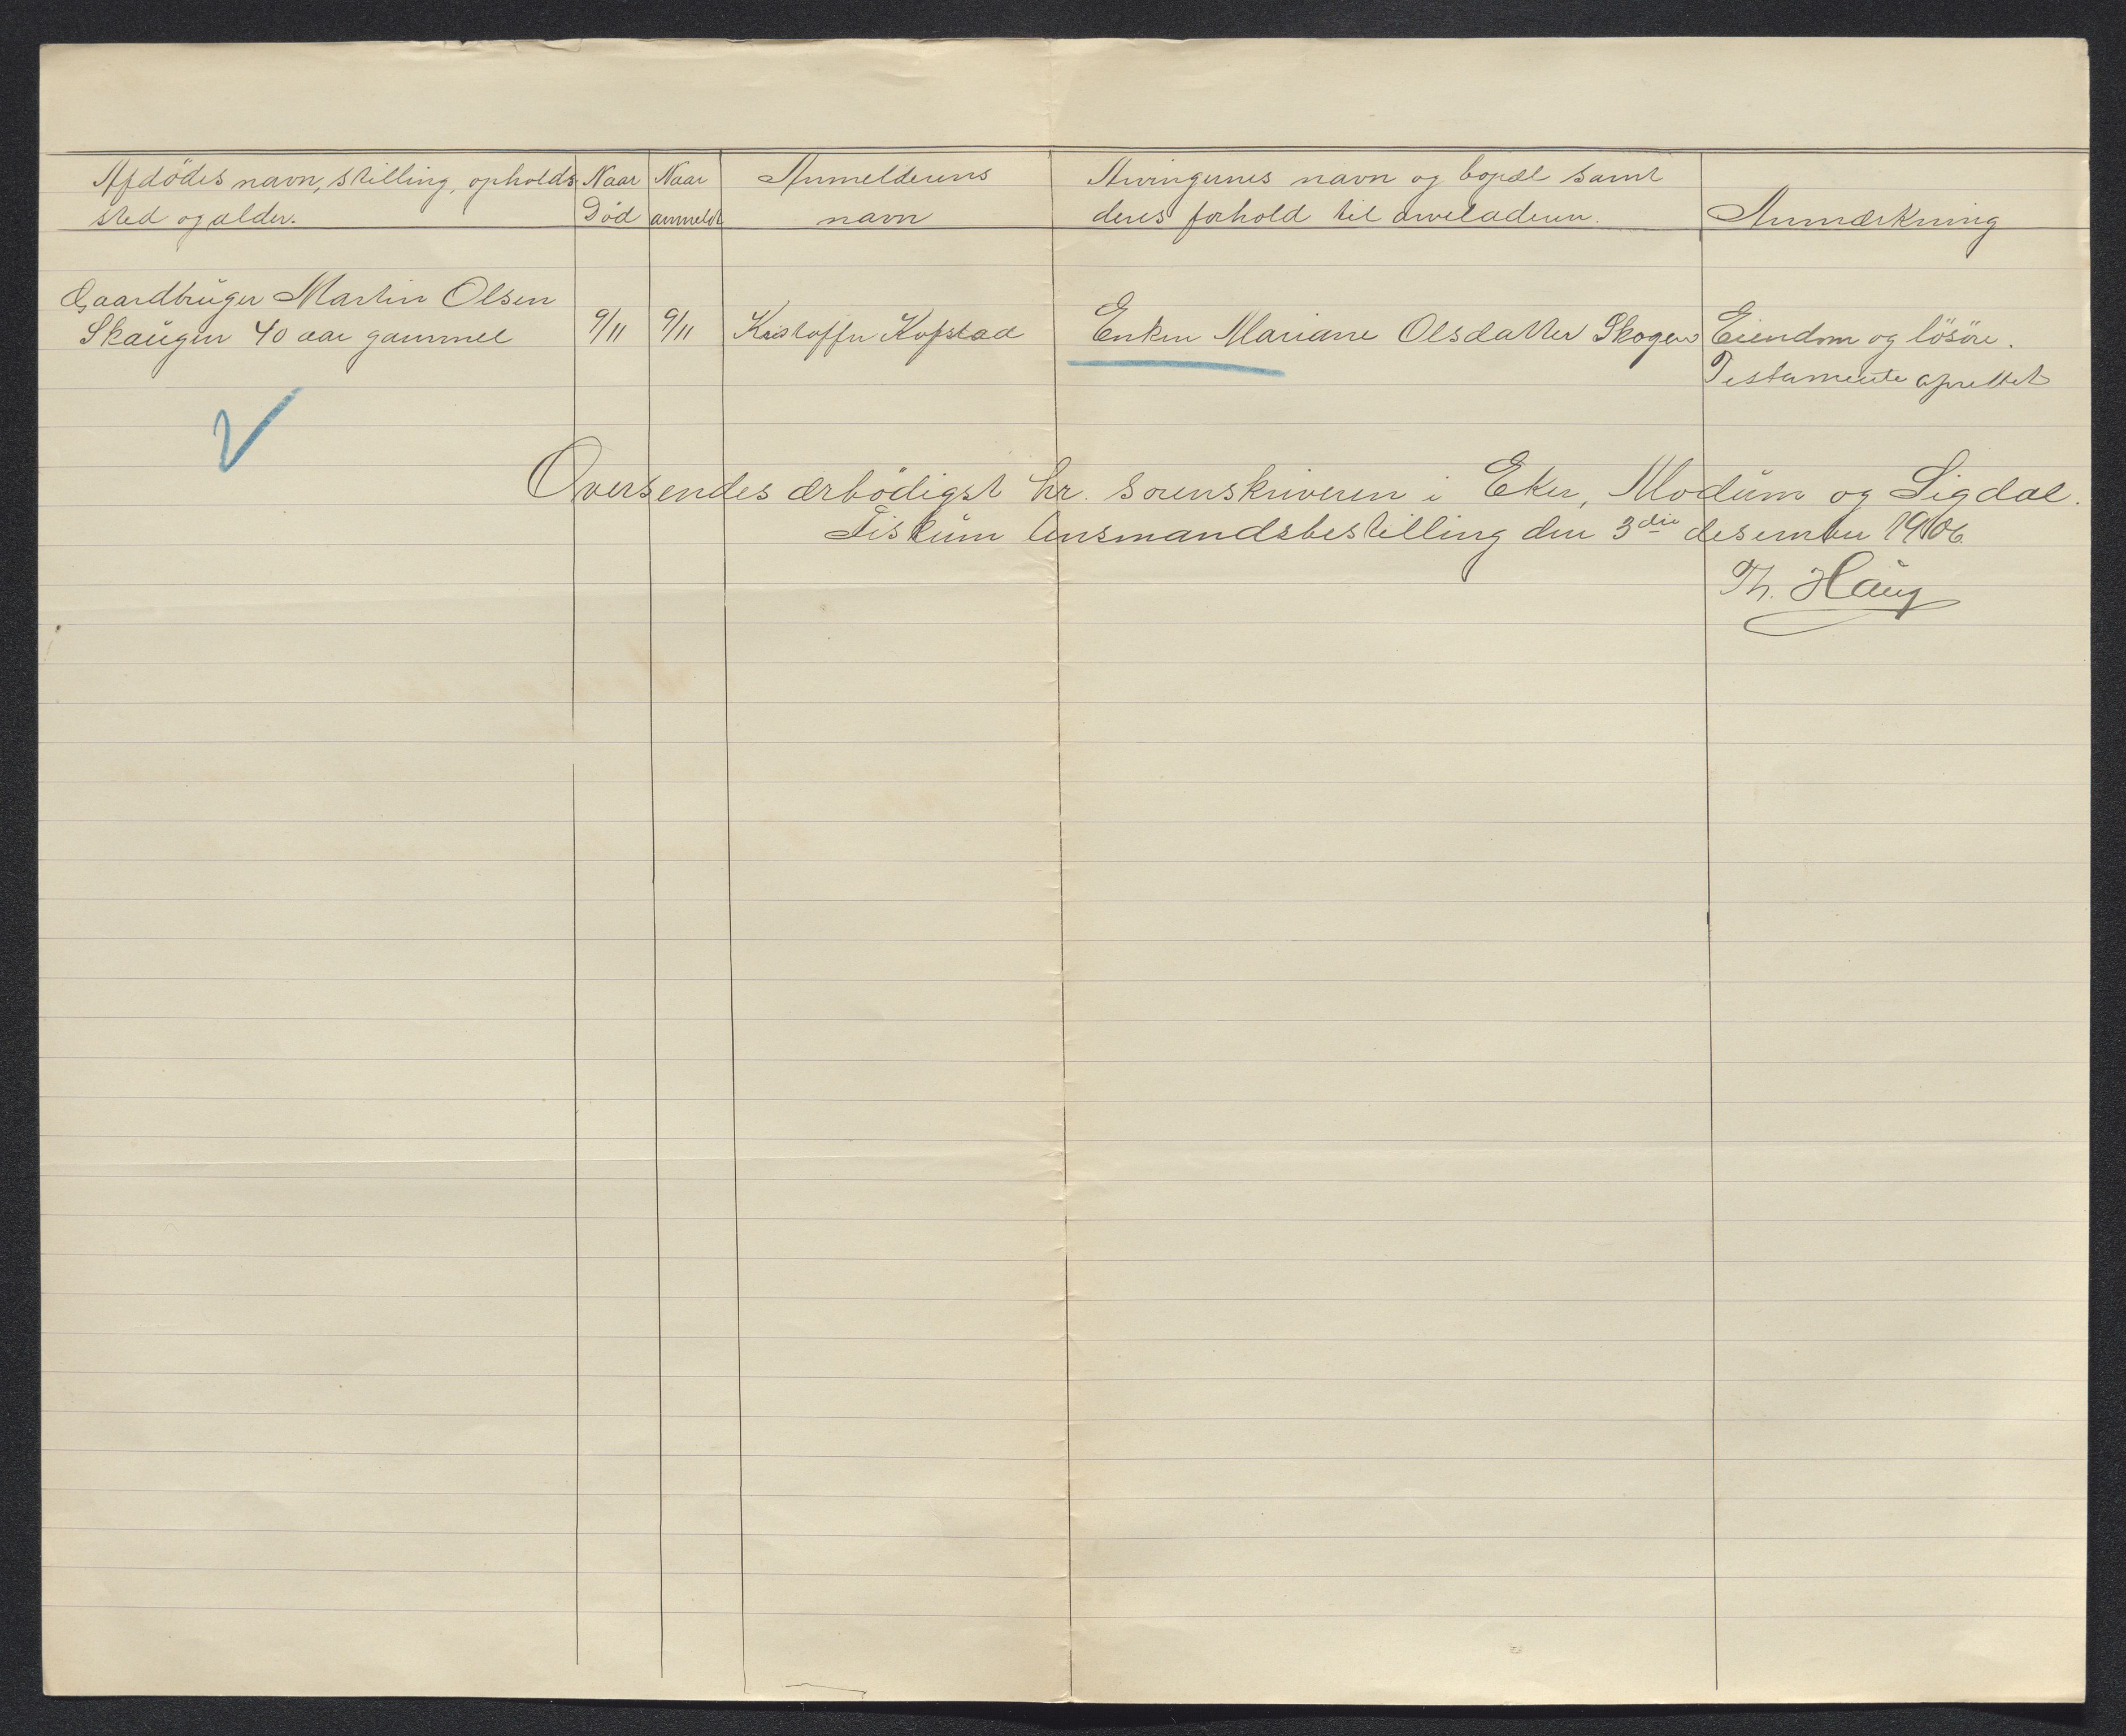 Afdödes navn, stilling, opholds-
sted og alder.
Naar
Död
Naar
anmeldt
Anmelderens
navn
Arvingernes navn og bopæl samt
deres forhold til arveladeren.
Anmærkning
Gaardbruger Martin Olsen
Skaugen 40 aar gammel
9/11
9/11
Kristoffer Kopstad
Enken Mariane Olsdatter Skogen
Eiendom og lösöre.
Testamente oprettet
Oversendes ærbödigst hr. sorenskriveren i Eker, Modum og Sigdal.
Fiskum lensmandsbestilling den 3die desember 1906.
Th. Haug